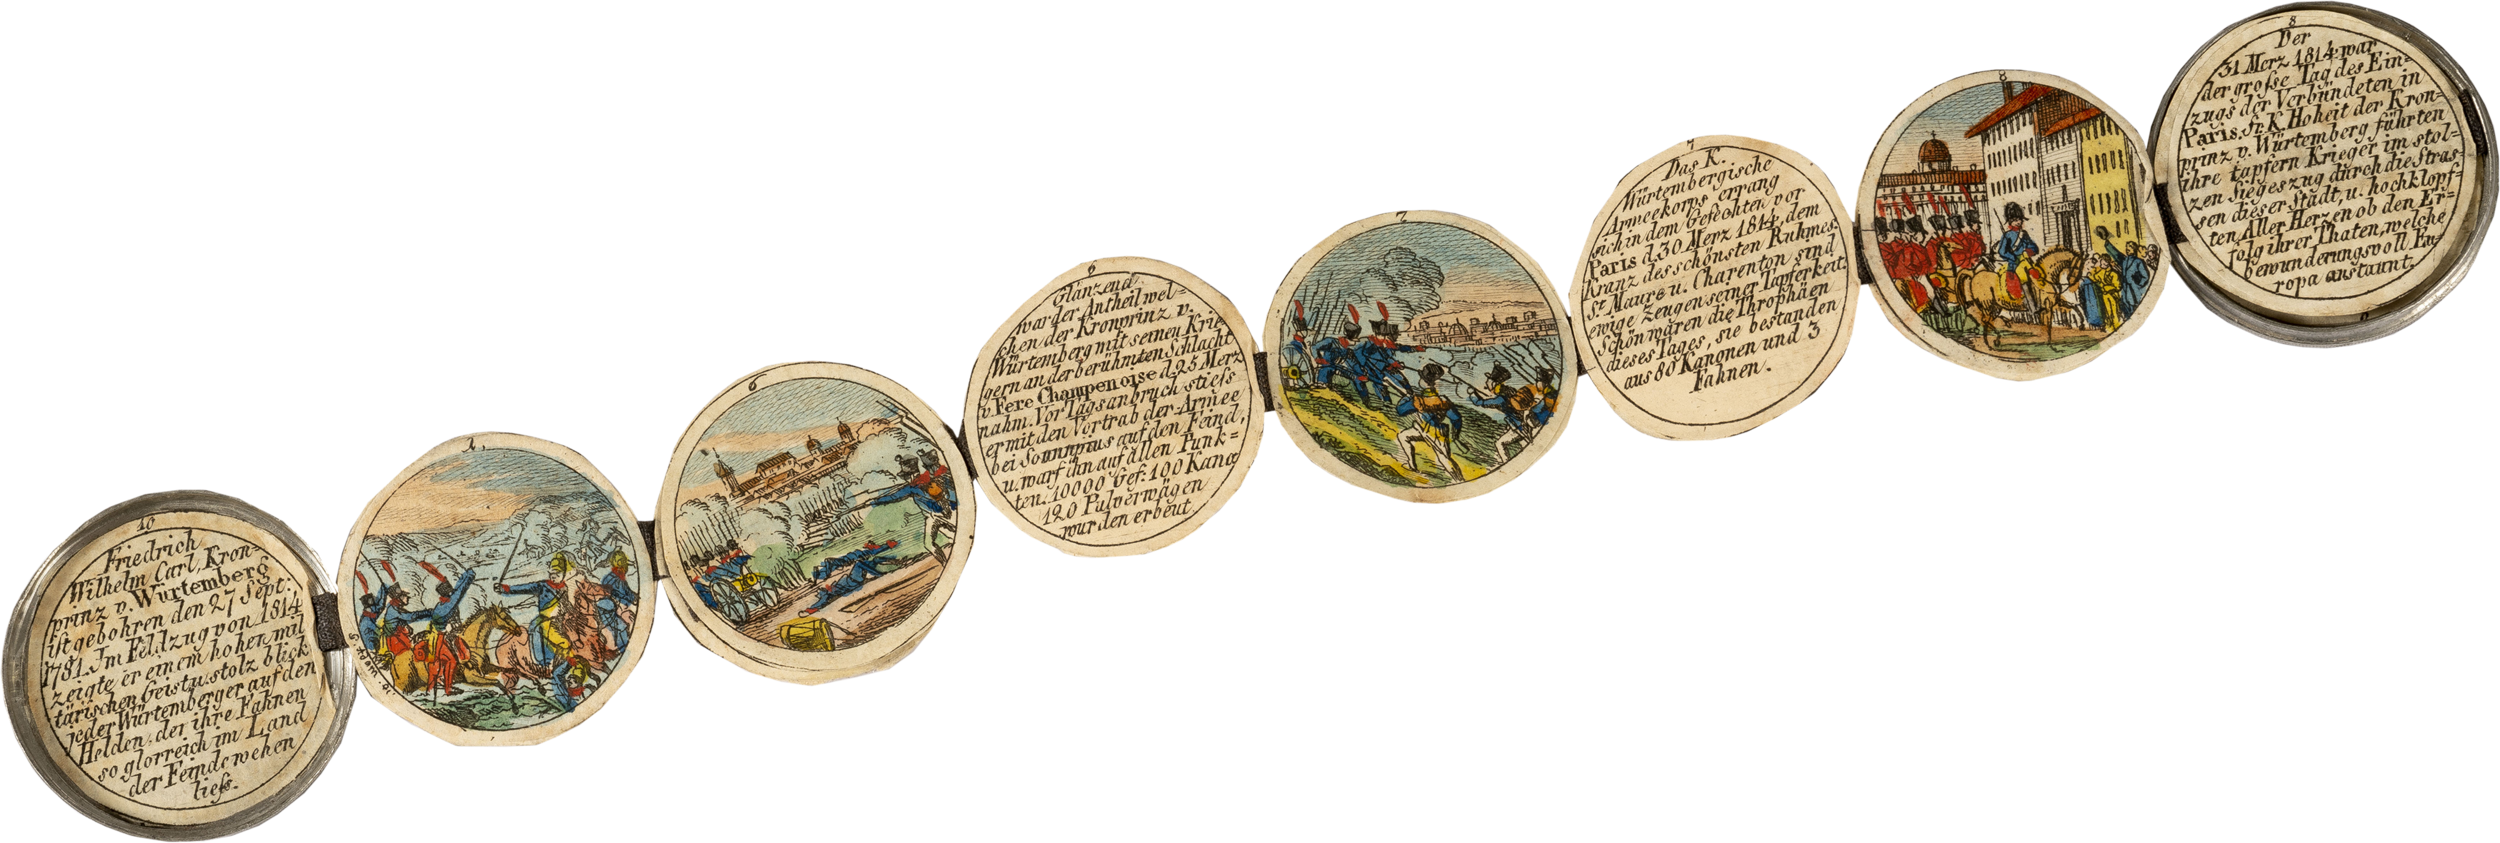 10
Friedrich
Wilhelm Carl, Kron-
prinz v. Würtemberg
ist gebohren den 27 Sept:
1781. Im Feldzug von 1814
zeigte er einem hohen mili
tärischen Geist u. stolz blick
jeder Würtemberger auf den
Helden, der ihre Fahnen
so glorreich im Land
der Feinde wehen
liess.
1.
G. Adam. sc.
6
6
Glänzend
war der Antheil wel-
chen der Kronprinz v.
Würtemberg mit seinen Krie-
gern an der berühmten Schlacht
v. Fere Champenoise d. 25 Merz
nahm. Vor Tagsanbruch stiess
er mit den Vortrab der Armee
bei Sounnpius auf den Feind,
u. warf ihn auf allen Punk=
ten. 10000 Gef: 100 Kano
120 Pulverwägen
wurden erbeut.
7
7
Das K.
Würtembergische
Armeekorps errang
sich in dem Gefechten vor
Paris d. 30 Merz 1814, dem
Kranz des schönsten Ruhmes.
St. Maure u. Charenton sind
ewige Zeugen seiner Tapferkeit.
Schön wären die Throphäen
dieses Tages, sie bestanden
aus 80 Kanonen und 3
Fahnen.
8
8
Der
31 Merz 1814 war
der grosse Tag des Ein=
zugs der Verbündeten in
Paris. Sr. K. Hoheit der Kron-
prinz v. Würtemberg führten
ihre tapfern Krieger im stol=
zen Siegeszug durch die Stras-
sen dieser Stadt, u. hochklopf=
ten Aller Herzen ob den Er-
folg ihrer Thaten, welche
bewunderungsvoll Eu-
ropa anstaunt.